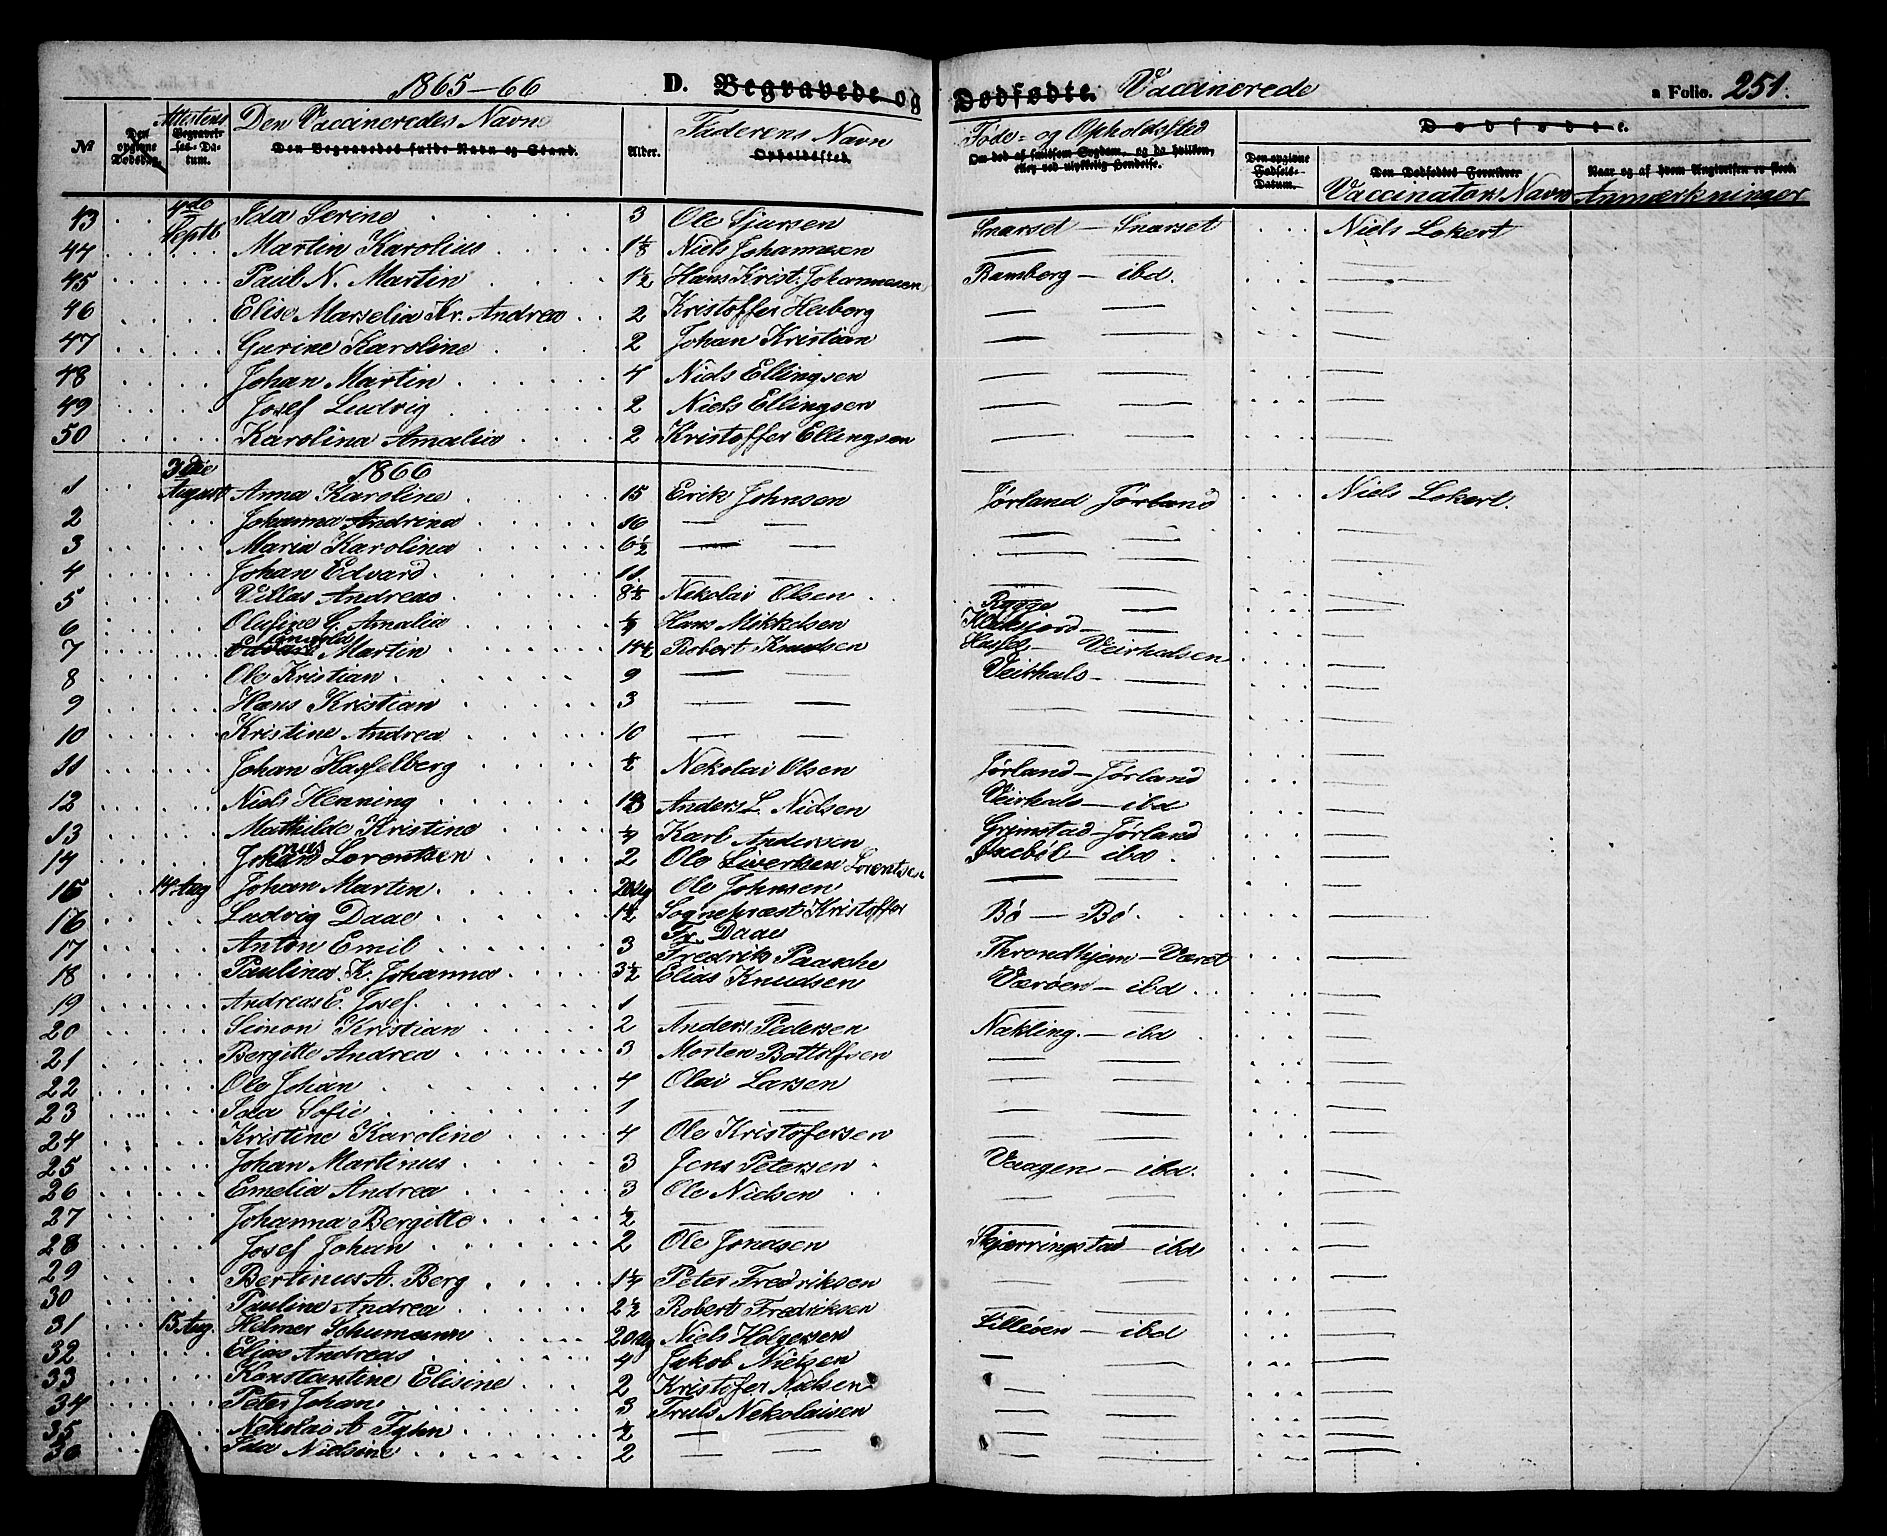 1865-66 D. Begravede og Dødfødte. Vaccinerede a Folio. 251.
№ Den opgivne Dødsdag. Attestens Begravelses-Datum. Den Vaccineredes Navn Den Begravedes fulde Navn og Stand. Alder. Faderens Navn Opholdssted. Føde- og Opholdssted Om død af smitsom Sygdom, og da hvilken, eller ved ulykkelig Hendelse. Dødfødte. Den opgivne Fødsels-Datum. Den Dødfødtes Forældre Vaccinators Navn Naar og af hvem Angivelsen er skeet. Anmærkninger
43 4de Septb Ida Serine 3 Ole Sjursen Snarset - Snarset Niels Lokert
44 Martin Karolius 1 1/8 Niels Johannesen — — —
45 Paul N. Martin 1 1/2 Hans Krist. Johannesen Ramberg - ibd. —
46 Elise Marselia Kr. Andrea 2 Kristoffer Heiberg — — —
47 Gurine Karoline 2 Johan Kristian — — —
48 Johan Martin 4 Niels Ellingsen — — —
49 Josef Ludvig 2 Niels Ellingsen — — —
50 Karolina Amalia 2 Kristoffer Ellingsen — — —
1866
1 3die August Anna Karoline 15 Erik Johnsen Jørland Jørland Niels Lokert.
2 Johanna Andrina 16 — — — — —
3 Maria Karolina 6 1/2 — — — — —
4 Johan Edvard 11 — — — — —
5 Villas Andreas 8 1/2 Nekolai Olsen — —
6 Olufine C. Amalia Hans Mikkelsen — —
7 Martin 14 1/2 Robert Knudsen Hassel - Veirhalsen —
8 Ole Kristian 9 — — Veirhals - — —
9 Hans Kristian 3 — — — — —
10 Kristine Andrea 10 — — — — —
11 Johan Hasselberg 1/2 Nekolai Olsen Jørland - Jørland —
12 Niels Henning Anders L. Nielsen Veirhals - ibd —
13 Mathilde Kristine 1/4 Karl Andersen Grimstad - Jørland —
14 Johannes Lorentsen 2 Ole Siverksen Lorentsen - ibd —
15 14 Aug Johan Martin Ole Johnsen — — —
16 Ludvig Daae 1 1/2 Sogneprest Kristoffer Bø - Bø —
Daae
17 Anton Emil 3 Fredrik Paasche Throndhjem - Værøt —
18 Paulina K. Johanna 3 1/2 Elias Knudsen Værøen - ibd —
19 Andreas E. Josef 1 — — — — —
20 Simon Kristian 2 Anders Pedersen Nækling. - ibd —
21 Bergitte Andrea 3 Morten Bottolfsen — — —
22 Ole Johan 4 Olai Larsen — — —
23 Ida Sofie 1 — — — — —
24 Kristine Karoline 4 Ole Kristofersen — — —
25 Johan Martinus 3 Jens Petersen Vaagen - ibd. —
26 Emelia Andrea 3 Ole Nielsen — — —
27 Johanna Bergitte 1/2 — — — — —
28 Josef Johan 2 Ole Jondsen Skjærringstad - ibd —
29 Bertinus A. Berg 1 1/4 Peter Fredriksen — — —
30 Pauline Andrea 2 1/2 Robert Fredriksen — — —
31 15 Aug. Hilmer Schumann Niels Holgersen Lilleøen - ibd —
32 Elias Andreas 4 Jakob Nielsen — — —
33 Konstantine Elisine 2 Kristofer Nielsen — — —
34 Peter Johan 3 Truls Nekolaisen — — —
35 Nekolai A Fyhn 1/2 — — — — —
36 Ida Nielsine 2 — — — — —